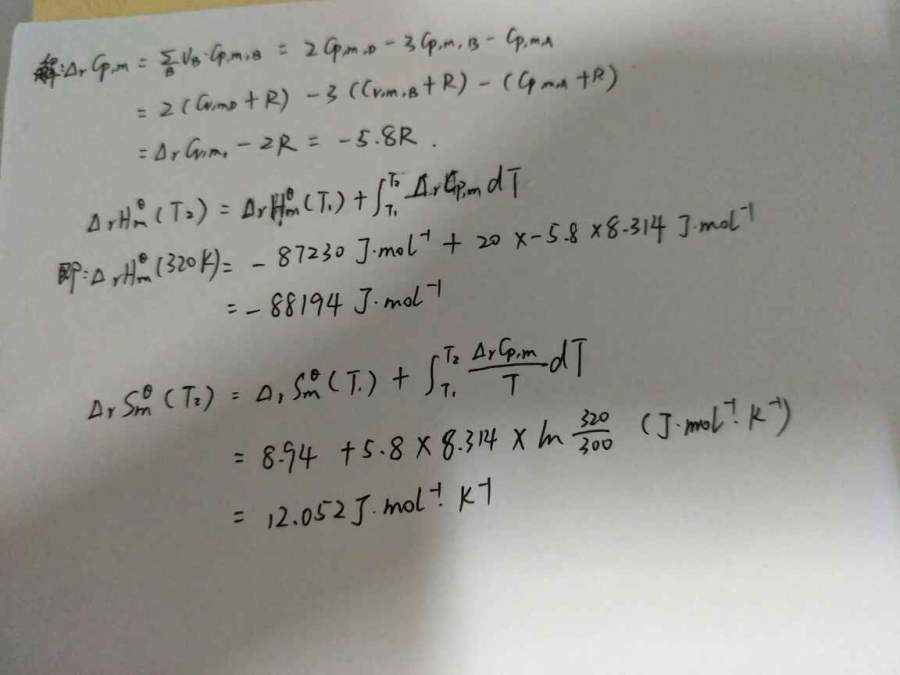 解:ΔrCp,m = Σ_B νB·Cp,m,B = 2Cp,m,D - 3Cp,m,B - Cp,m,A
= 2(Cv,m,D + R) - 3(Cv,m,B + R) - (Cp,m,A + R)
= ΔrCv,m, - 2R = -5.8R.
ΔrHm^θ(T₂) = ΔrHm^θ(T₁) + ∫_{T₁}^{T₂} ΔrCp,m dT
即:ΔrHm^θ(320K) = - 87230 J·mol⁻¹ + 20 × -5.8 × 8.314 J·mol⁻¹
= - 88194 J·mol⁻¹
ΔrSm^θ(T₂) = ΔrSm^θ(T₁) + ∫_{T₁}^{T₂} ΔrCp,m/T dT
= 8.94 + 5.8 × 8.314 × ln 320/300 (J·mol⁻¹·K⁻¹)
= 12.052 J·mol⁻¹·K⁻¹